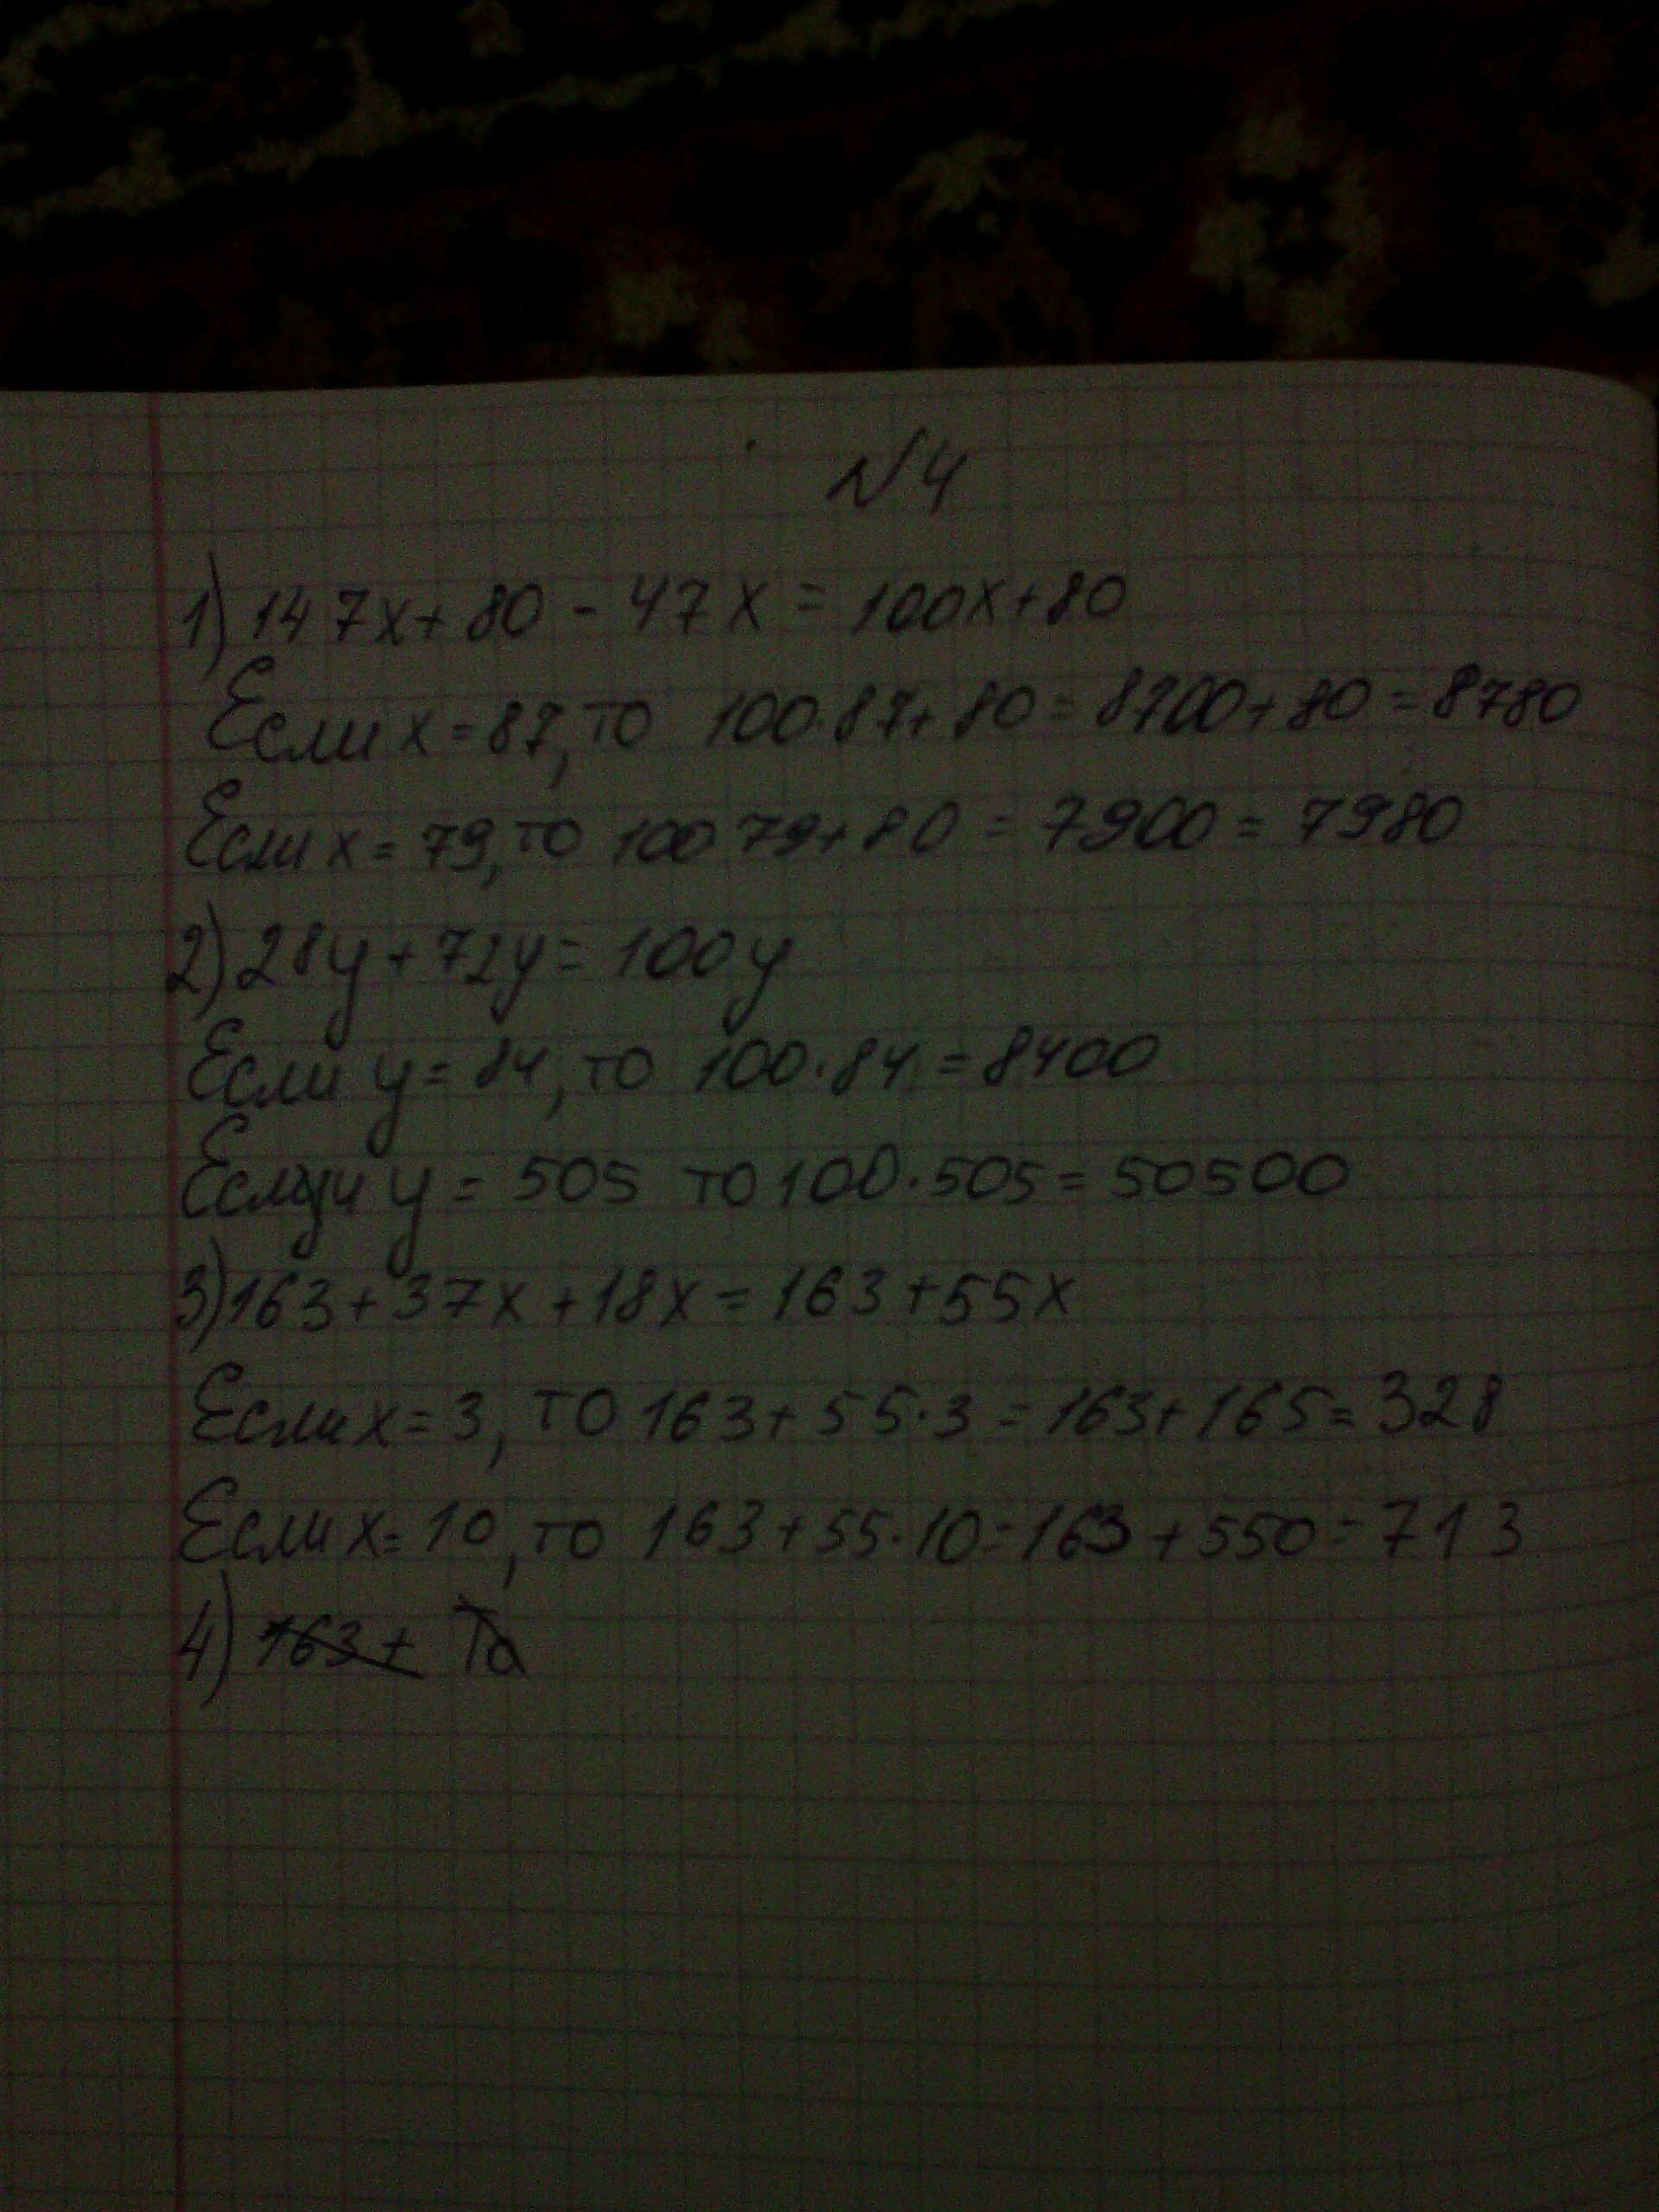 №4
1) 147x+80 - 47x = 100x+80
Если x = 87, то 100·87+80 = 8700+80 = 8780
Если x = 79, то 100 79+80 = 7900 = 7980
2) 28y + 72y = 100y
Если y = 84, то 100·84 = 8400
Если y = 505 то 100·505 = 50500
3) 163 + 37x + 18x = 163 + 55x
Если x = 3, то 163 + 55·3 = 163 + 165 = 328
Если x = 10, то 163 + 55·10 = 163 + 550 = 713
4) 163 +